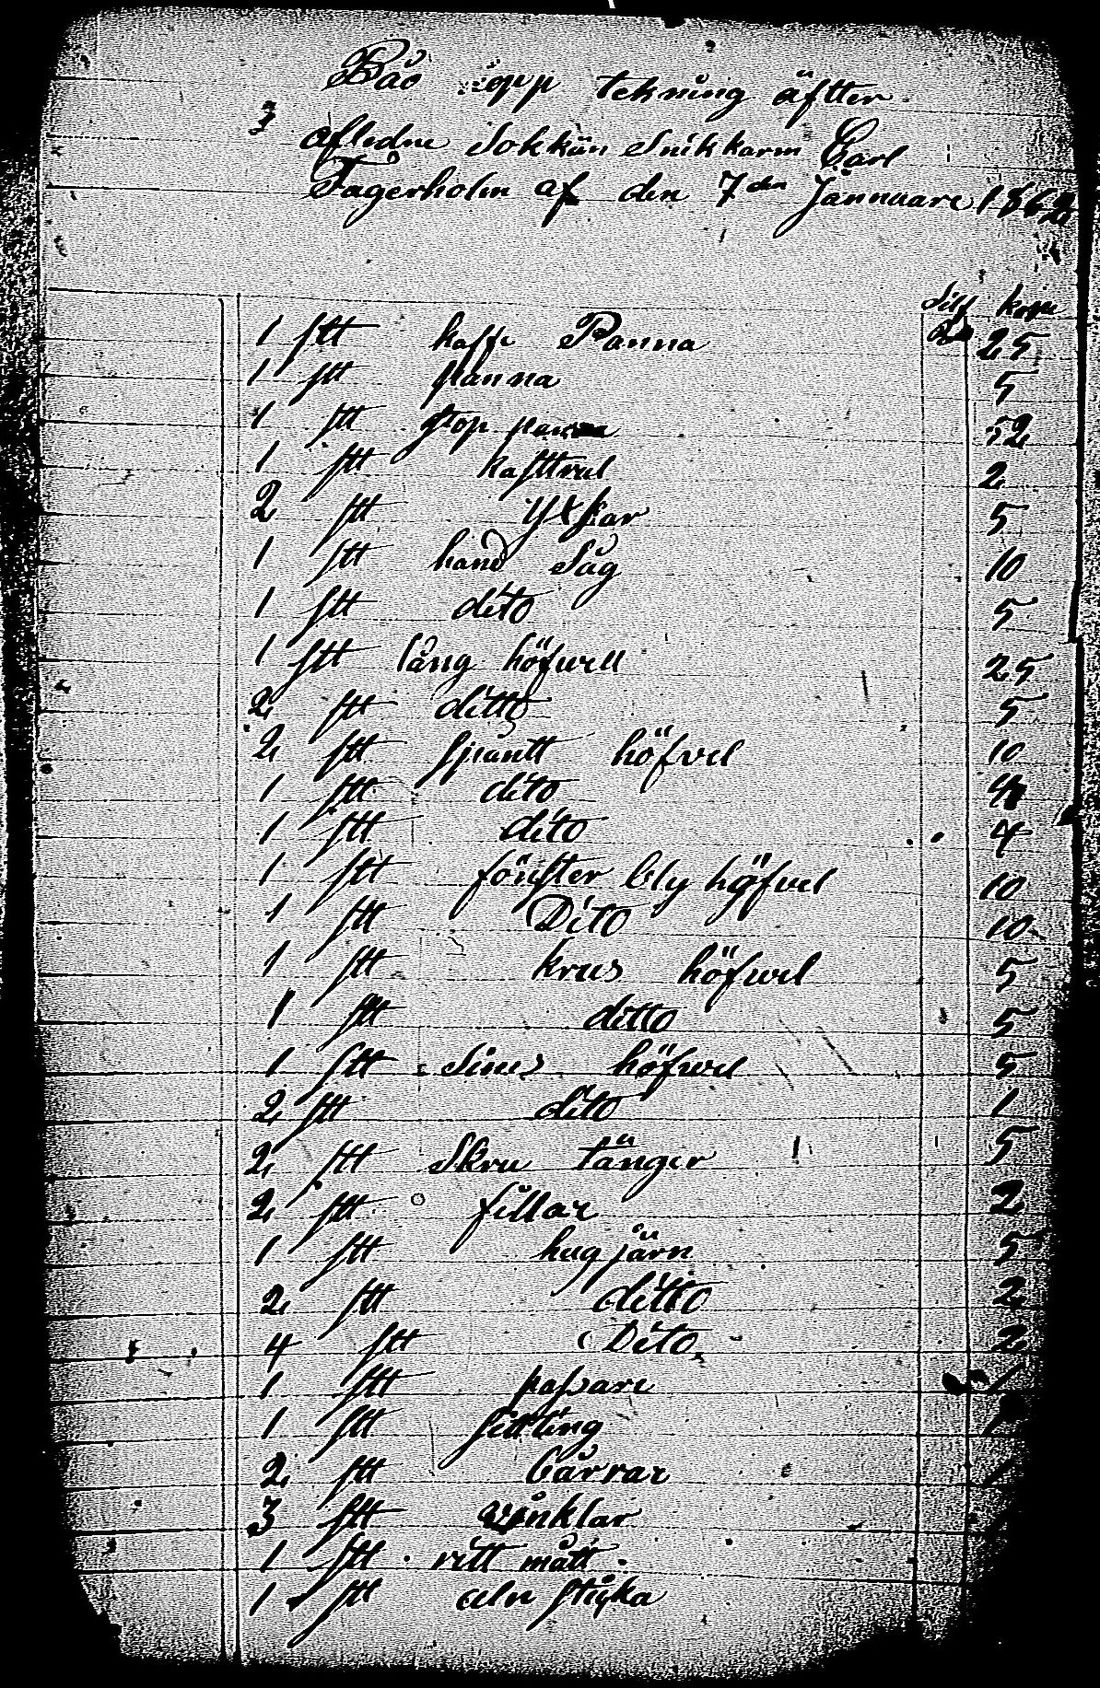 Båo opp tekning äftter
afledne Sokkän Snikkarm Carl
Fagerholm af den 7den Jannuari 1862
Sill kopr
1 stt kaffe Panna 25
1 stt panna 5
1 stt stop panna 52
1 stt kasttrul 2
2 stt yxkar 5
1 stt hand Såg 10
1 stt dito 5
1 stt lång höfwell 25
2 stt ditto 5
2 stt spåntt höfvel 10
1 stt dito 4
1 stt dito 4
1 stt fönster bly höfvel 10
1 stt Dito 10
1 stt krus höfwel 5
1 stt ditto 5
1 stt Sims höfwel 5
2 stt dito 1
2 stt Skru tänger 5
2 stt fillar 2
1 stt hugjärn 5
2 stt ditto 2
4 stt Dito 2
1 stt passare 1
1 stt
2 stt bårrar 1
3 stt vinklar
1 stt ritt mått
1 stt aln stika